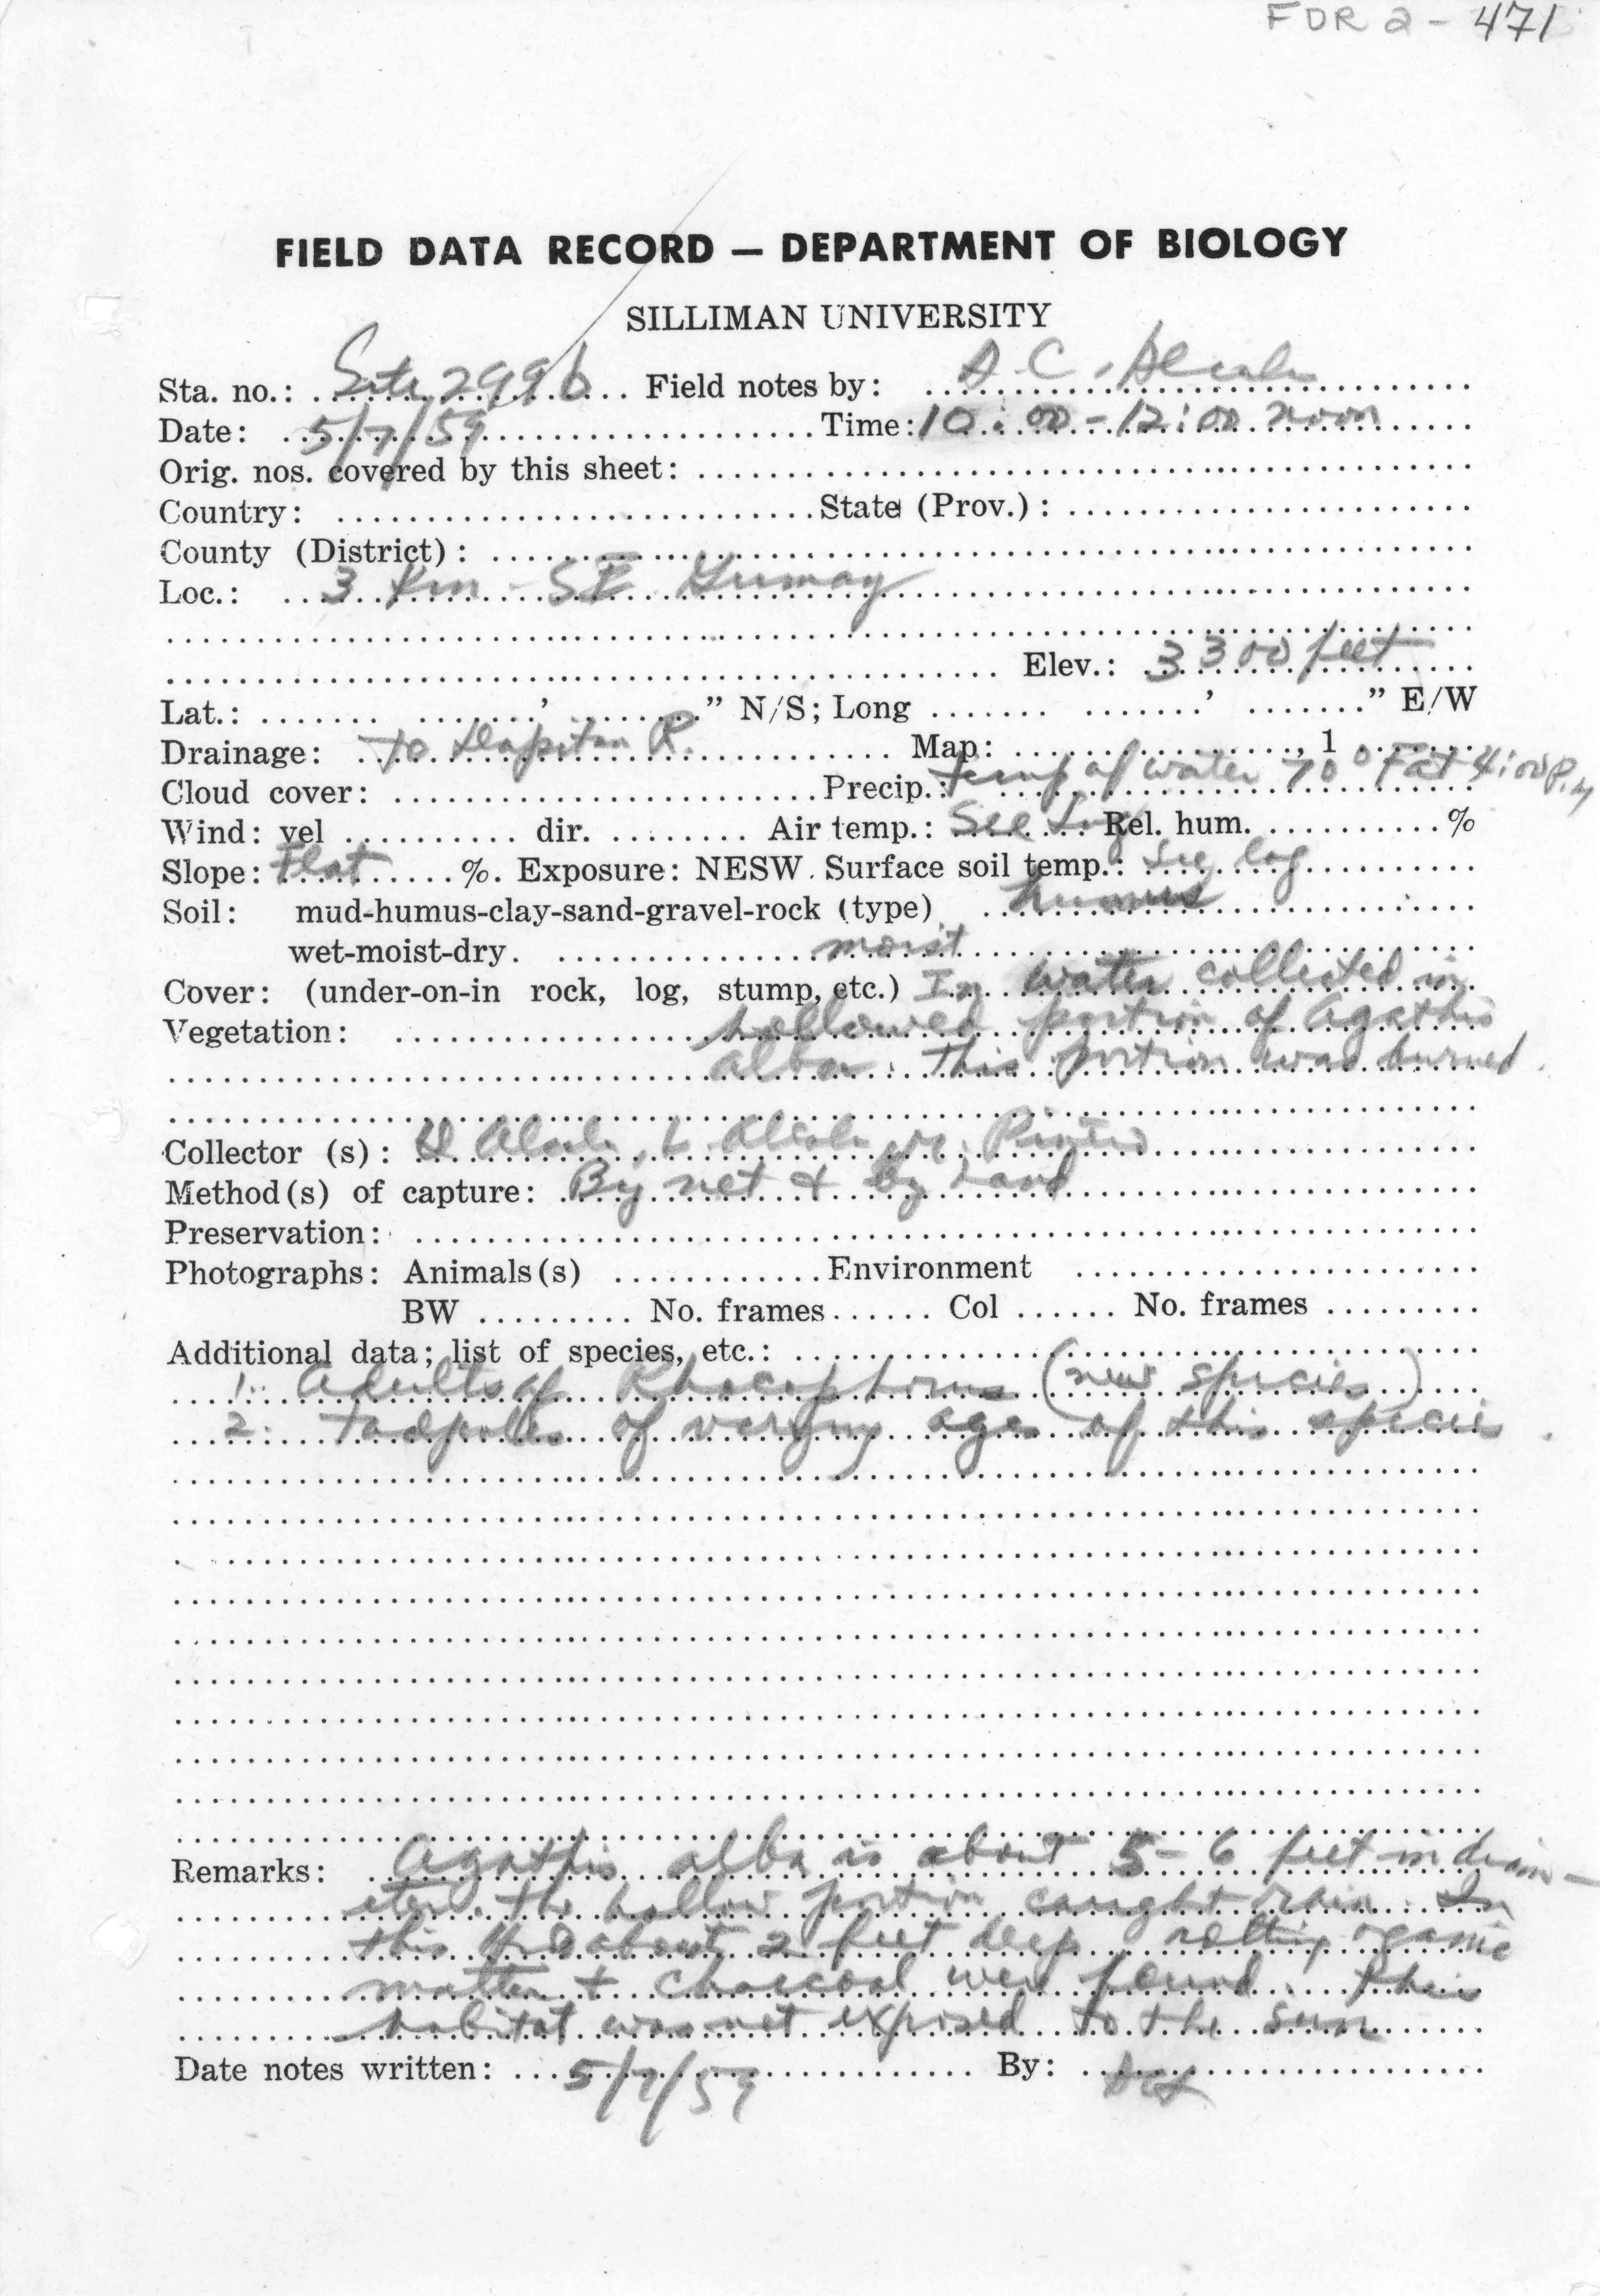 FDR 2 - 471
FIELD DATA RECORD — DEPARTMENT OF BIOLOGY
SILLIMAN UNIVERSITY
Sta. no.: Site 299b Field notes by: A. C. Alcala
Date: 5/7/59 Time: 10:00 - 12:00 noon
Orig. nos. covered by this sheet:
Country: State (Prov.):
County (District):
Loc.: 3 Km - SE Gumay
Elev.: 3300 feet
Lat.: ' " N/S; Long ' " E/W
Drainage: to Dapitan R. Map: , 1
Cloud cover: Precip.: temp of water 70° F at 4:00 P.M
Wind: vel dir. Air temp.: See Log Rel. hum. %
Slope: Flat %. Exposure: NESW. Surface soil temp.: See log
Soil: mud-humus-clay-sand-gravel-rock (type) humus
wet-moist-dry. moist
Cover: (under-on-in rock, log, stump, etc.) In water collected in
Vegetation: hollowed portion of Agathis
alba. This portion was burned.
Collector (s): A Alcala, L Alcala, Pinero
Method(s) of capture: By net & by hand
Preservation:
Photographs: Animals(s) Environment
BW No. frames Col No. frames
Additional data; list of species, etc.:
1. Adults of Rhacophorus (new species)
2. Tadpoles of varying ages of this species.
Remarks: Agathis alba is about 5-6 feet in diam-
eter. The hollow portion caught rain. In
this about 2 feet deep rotting organic
matter & charcoal were found. This
habitat was not exposed to the sun
Date notes written: 5/7/59 By: